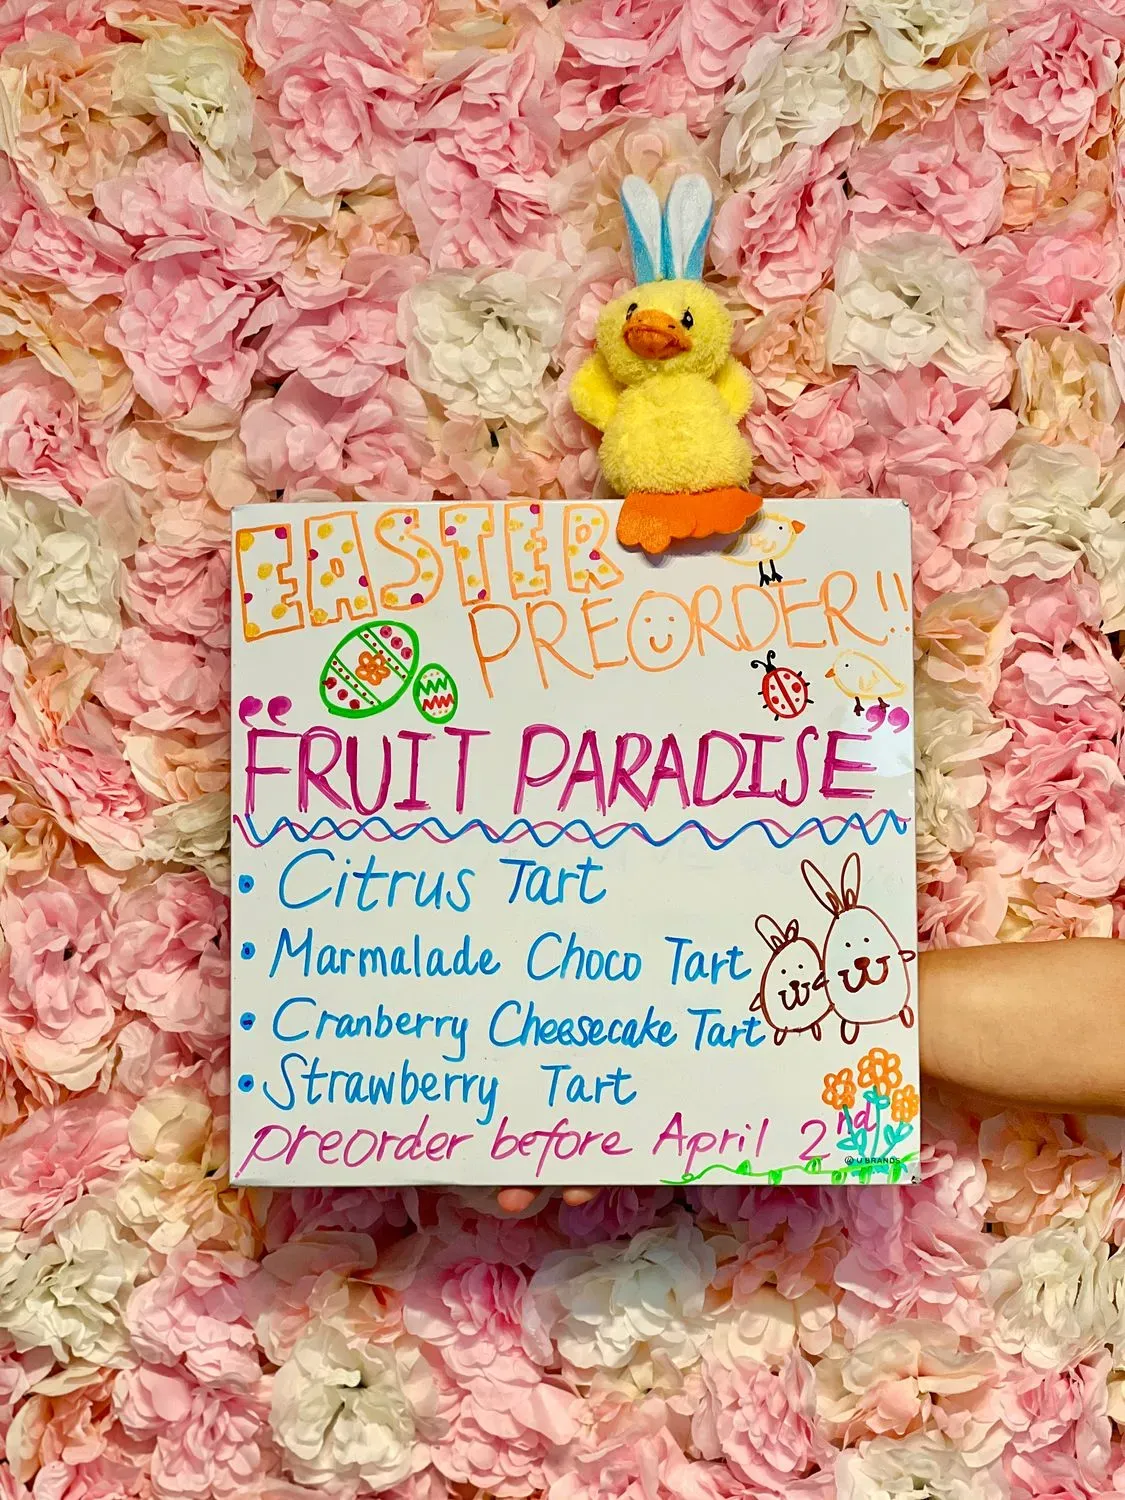 EASTER
PREORDER!!
“FRUIT PARADISE”
• Citrus Tart
• Marmalade Choco Tart
• Cranberry Cheesecake Tart
• Strawberry Tart
preorder before April 2nd
U BRANDS